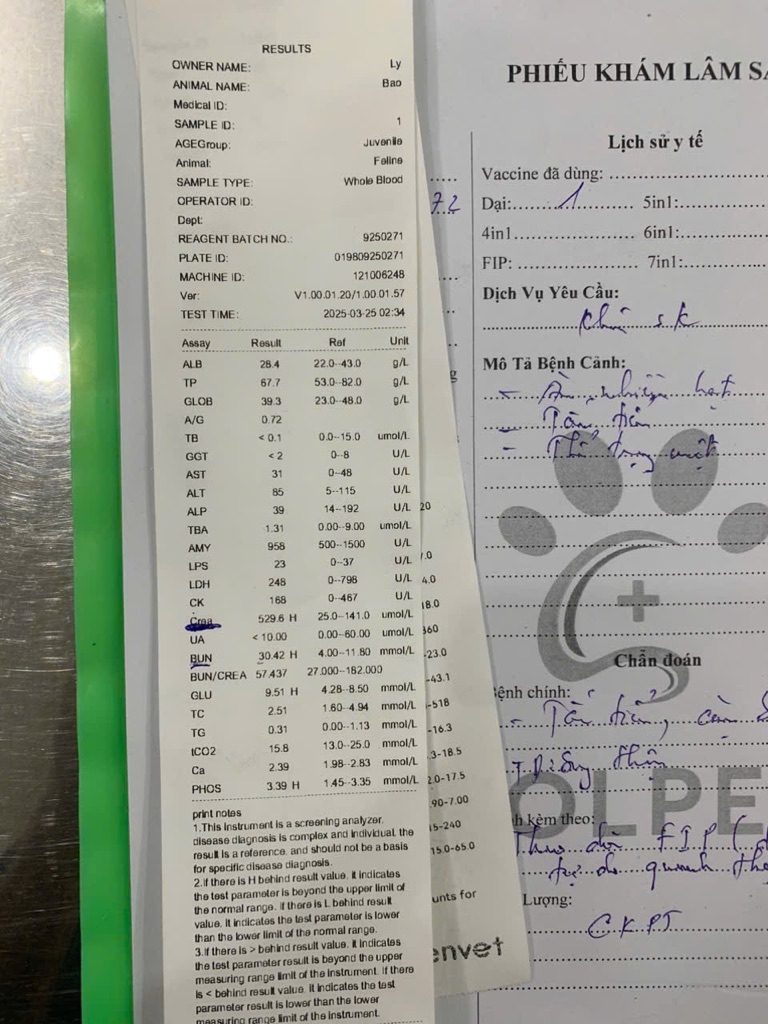 RESULTS
OWNER NAME: Ly
ANIMAL NAME: Bao
Medical ID:
SAMPLE ID: 1
AGEGroup: Juvenile
Animal: Feline
SAMPLE TYPE: Whole Blood
OPERATOR ID:
Dept:
REAGENT BATCH NO.: 9250271
PLATE ID: 019809250271
MACHINE ID: 121006248
Ver: V1.00.01.20/1.00.01.57
TEST TIME: 2025-03-25 02:34
Assay Result Ref Unit
ALB 28.4 22.0--43.0 g/L
TP 67.7 53.0--82.0 g/L
GLOB 39.3 23.0--48.0 g/L
A/G 0.72
TB < 0.1 0.0--15.0 umol/L
GGT < 2 0--8 U/L
AST 31 0--48 U/L
ALT 85 5--115 U/L
ALP 39 14--192 U/L
TBA 1.31 0.00--9.00 umol/L
AMY 958 500--1500 U/L
LPS 23 0--37 U/L
LDH 248 0--798 U/L
CK 168 0--467 U/L
Crea 529.6 H 25.0--141.0 umol/L
UA < 10.00 0.00--60.00 umol/L
BUN 30.42 H 4.00--11.80 mmol/L
BUN/CREA 57.437 27.000--182.000
GLU 9.51 H 4.28--8.50 mmol/L
TC 2.51 1.60--4.94 mmol/L
TG 0.31 0.00--1.13 mmol/L
tCO2 15.8 13.0--25.0 mmol/L
Ca 2.39 1.98--2.83 mmol/L
PHOS 3.39 H 1.45--3.35 mmol/L
print notes
1.This instrument is a screening analyzer.
disease diagnosis is complex and individual. the
result is a reference. and should not be a basis
for specific disease diagnosis.
2.If there is H behind result value. It indicates
the test parameter is beyond the upper limit of
the normal range. If there is L behind result
value. It indicates the test parameter is lower
than the lower limit of the normal range.
3.If there is > behind result value. It indicates
the test parameter result is beyond the upper
measuring range limit of the instrument. If there
is < behind result value. It indicates the test
parameter result is lower than the lower
measuring range limit of the instrument.
20
7.0
4.0
18.0
360
-23.0
-43.1
-518
-16.3
.3-18.5
2.0-17.5
.90-7.00
15-240
15.0-65.0
unts for
envet
72
PHIẾU KHÁM LÂM SÀ
Lịch sử y tế
Vaccine đã dùng:
Dại: 1 5in1:
4in1 6in1:
FIP: 7in1:
Dịch Vụ Yêu Cầu:
Mô Tả Bệnh Cảnh:
Chẩn đoán
ệnh chính:
OLPE
h kèm theo:
Theo dõi FIP
Lượng:
CKPT